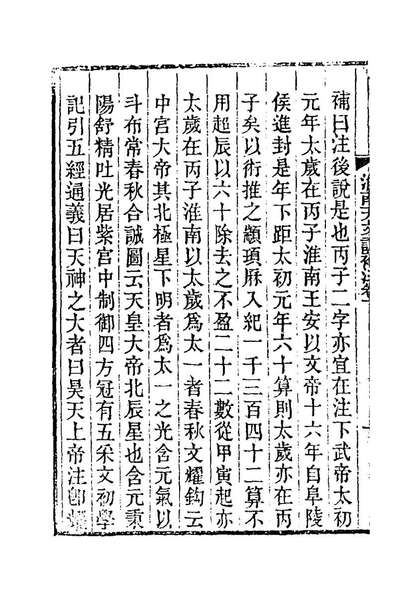 補曰注後說是也丙子二字亦宜在注下武帝太初
元年太歲在丙子淮南王安以文帝十六年自阜陵
侯進封是年下距太初元年六十算則太歲亦在丙
子矣以術推之顓頊厤入紀一千三百四十二算不
用超辰以六十除去之不盈二十二數從甲寅起亦
太歲在丙子淮南以太歲爲太一者春秋文耀鈎云
中宮大帝其北極星下明者爲太一之光含元氣以
斗布常春秋合誠圖云天皇大帝北辰星也含元秉
陽舒精吐光居紫宮中制御四方冠有五采文初學
記引五經通義曰天神之大者曰昊天上帝注卽耀